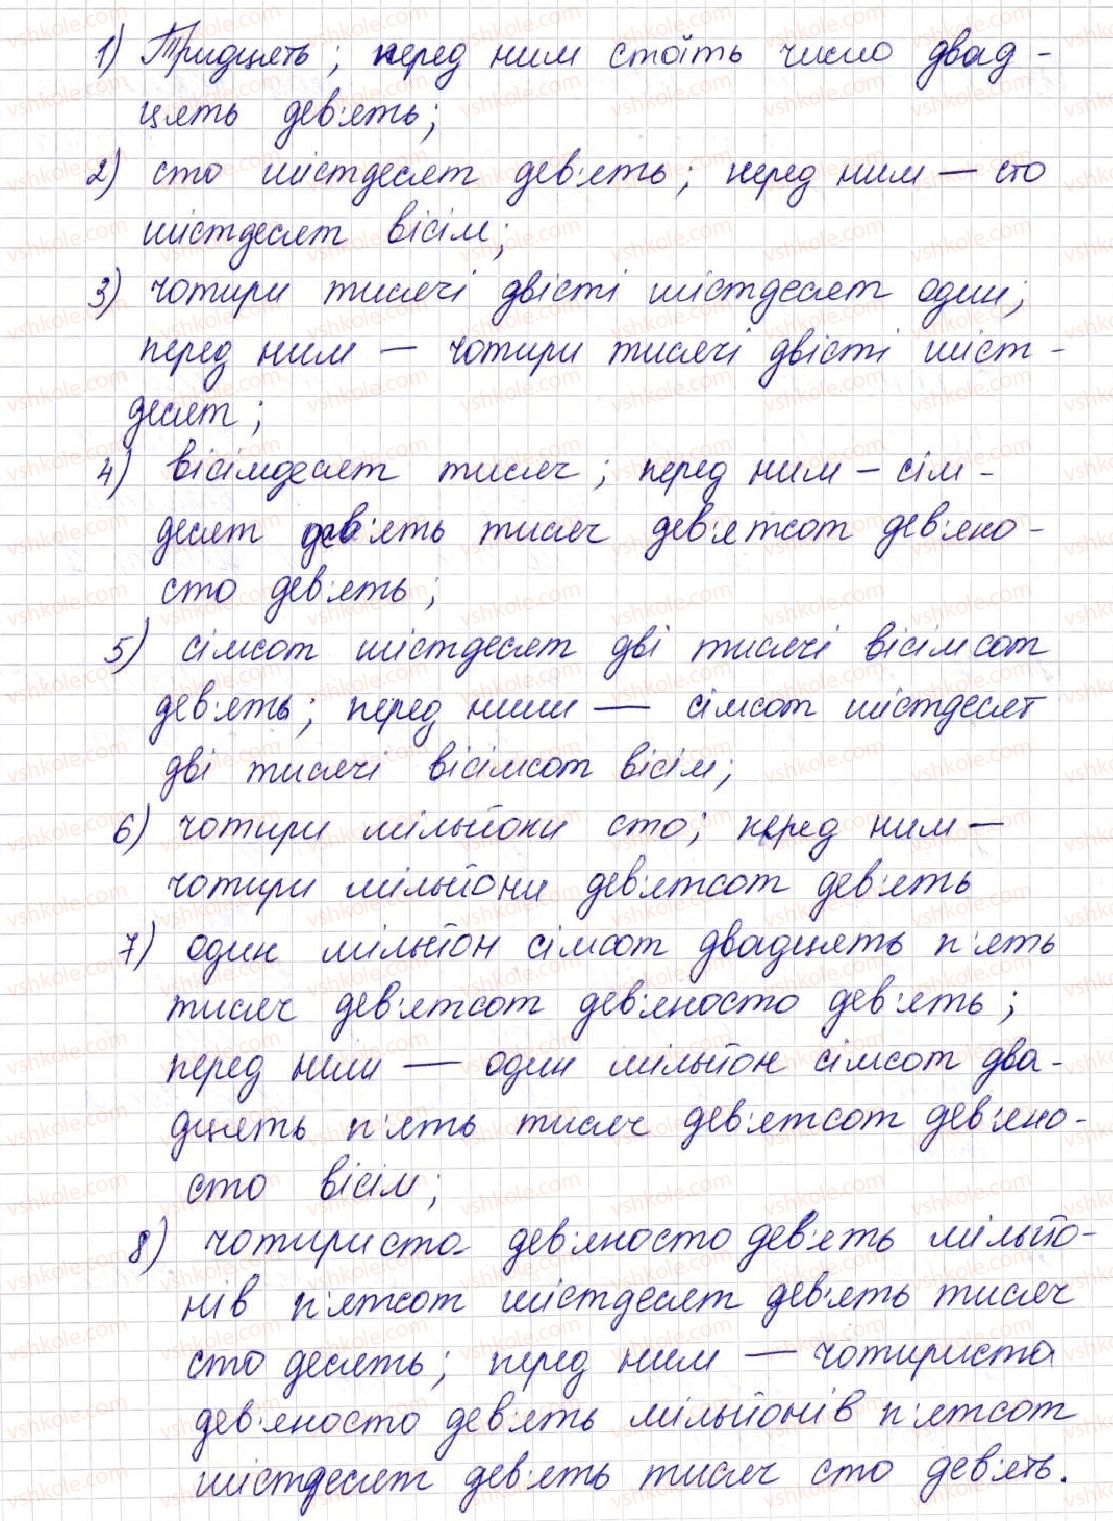 1) Тридцять; перед ним стоїть число двад-
цять дев'ять;
2) сто шістдесят дев'ять; перед ним — сто
шістдесят вісім;
3) чотири тисячі двісті шістдесят один;
перед ним — чотири тисячі двісті шіст-
десят;
4) вісімдесят тисяч; перед ним – сім-
десят дев'ять тисяч дев'ятсот дев'яно-
сто дев'ять;
5) сімсот шістдесят дві тисячі вісімсот
дев'ять; перед ними — сімсот шістдесят
дві тисячі вісімсот вісім;
6) чотири мільйони сто; перед ним —
чотири мільйони дев'ятсот дев'ять
7) один мільйон сімсот двадцять п'ять
тисяч дев'ятсот дев'яносто дев'ять;
перед ним — один мільйон сімсот два-
дцять п'ять тисяч дев'ятсот дев'яно-
сто вісім;
8) чотириста дев'яносто дев'ять мільйо-
нів п'ятсот шістдесят дев'ять тисяч
сто десять; перед ним — чотириста
дев'яносто дев'ять мільйонів п'ятсот
шістдесят дев'ять тисяч сто дев'ять.